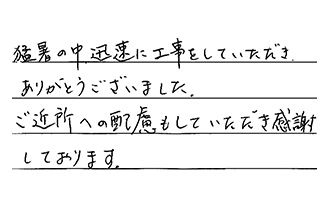 猛暑の中、迅速に工事をしていただき
ありがとうございました。
ご近所への配慮もしていただき感謝
しております。